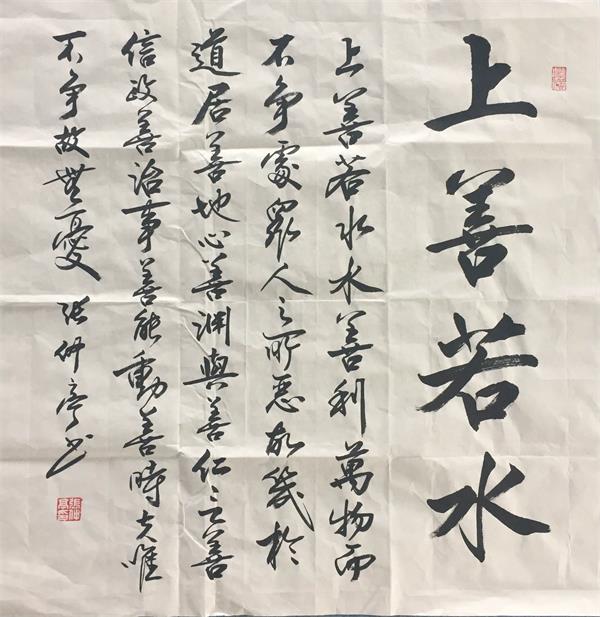 上善若水
上善若水水善利萬物而
不争處眾人之所惡故幾於
道居善地心善淵與善仁言善
信政善治事善能動善時夫唯
不争故無憂 張仲亭书